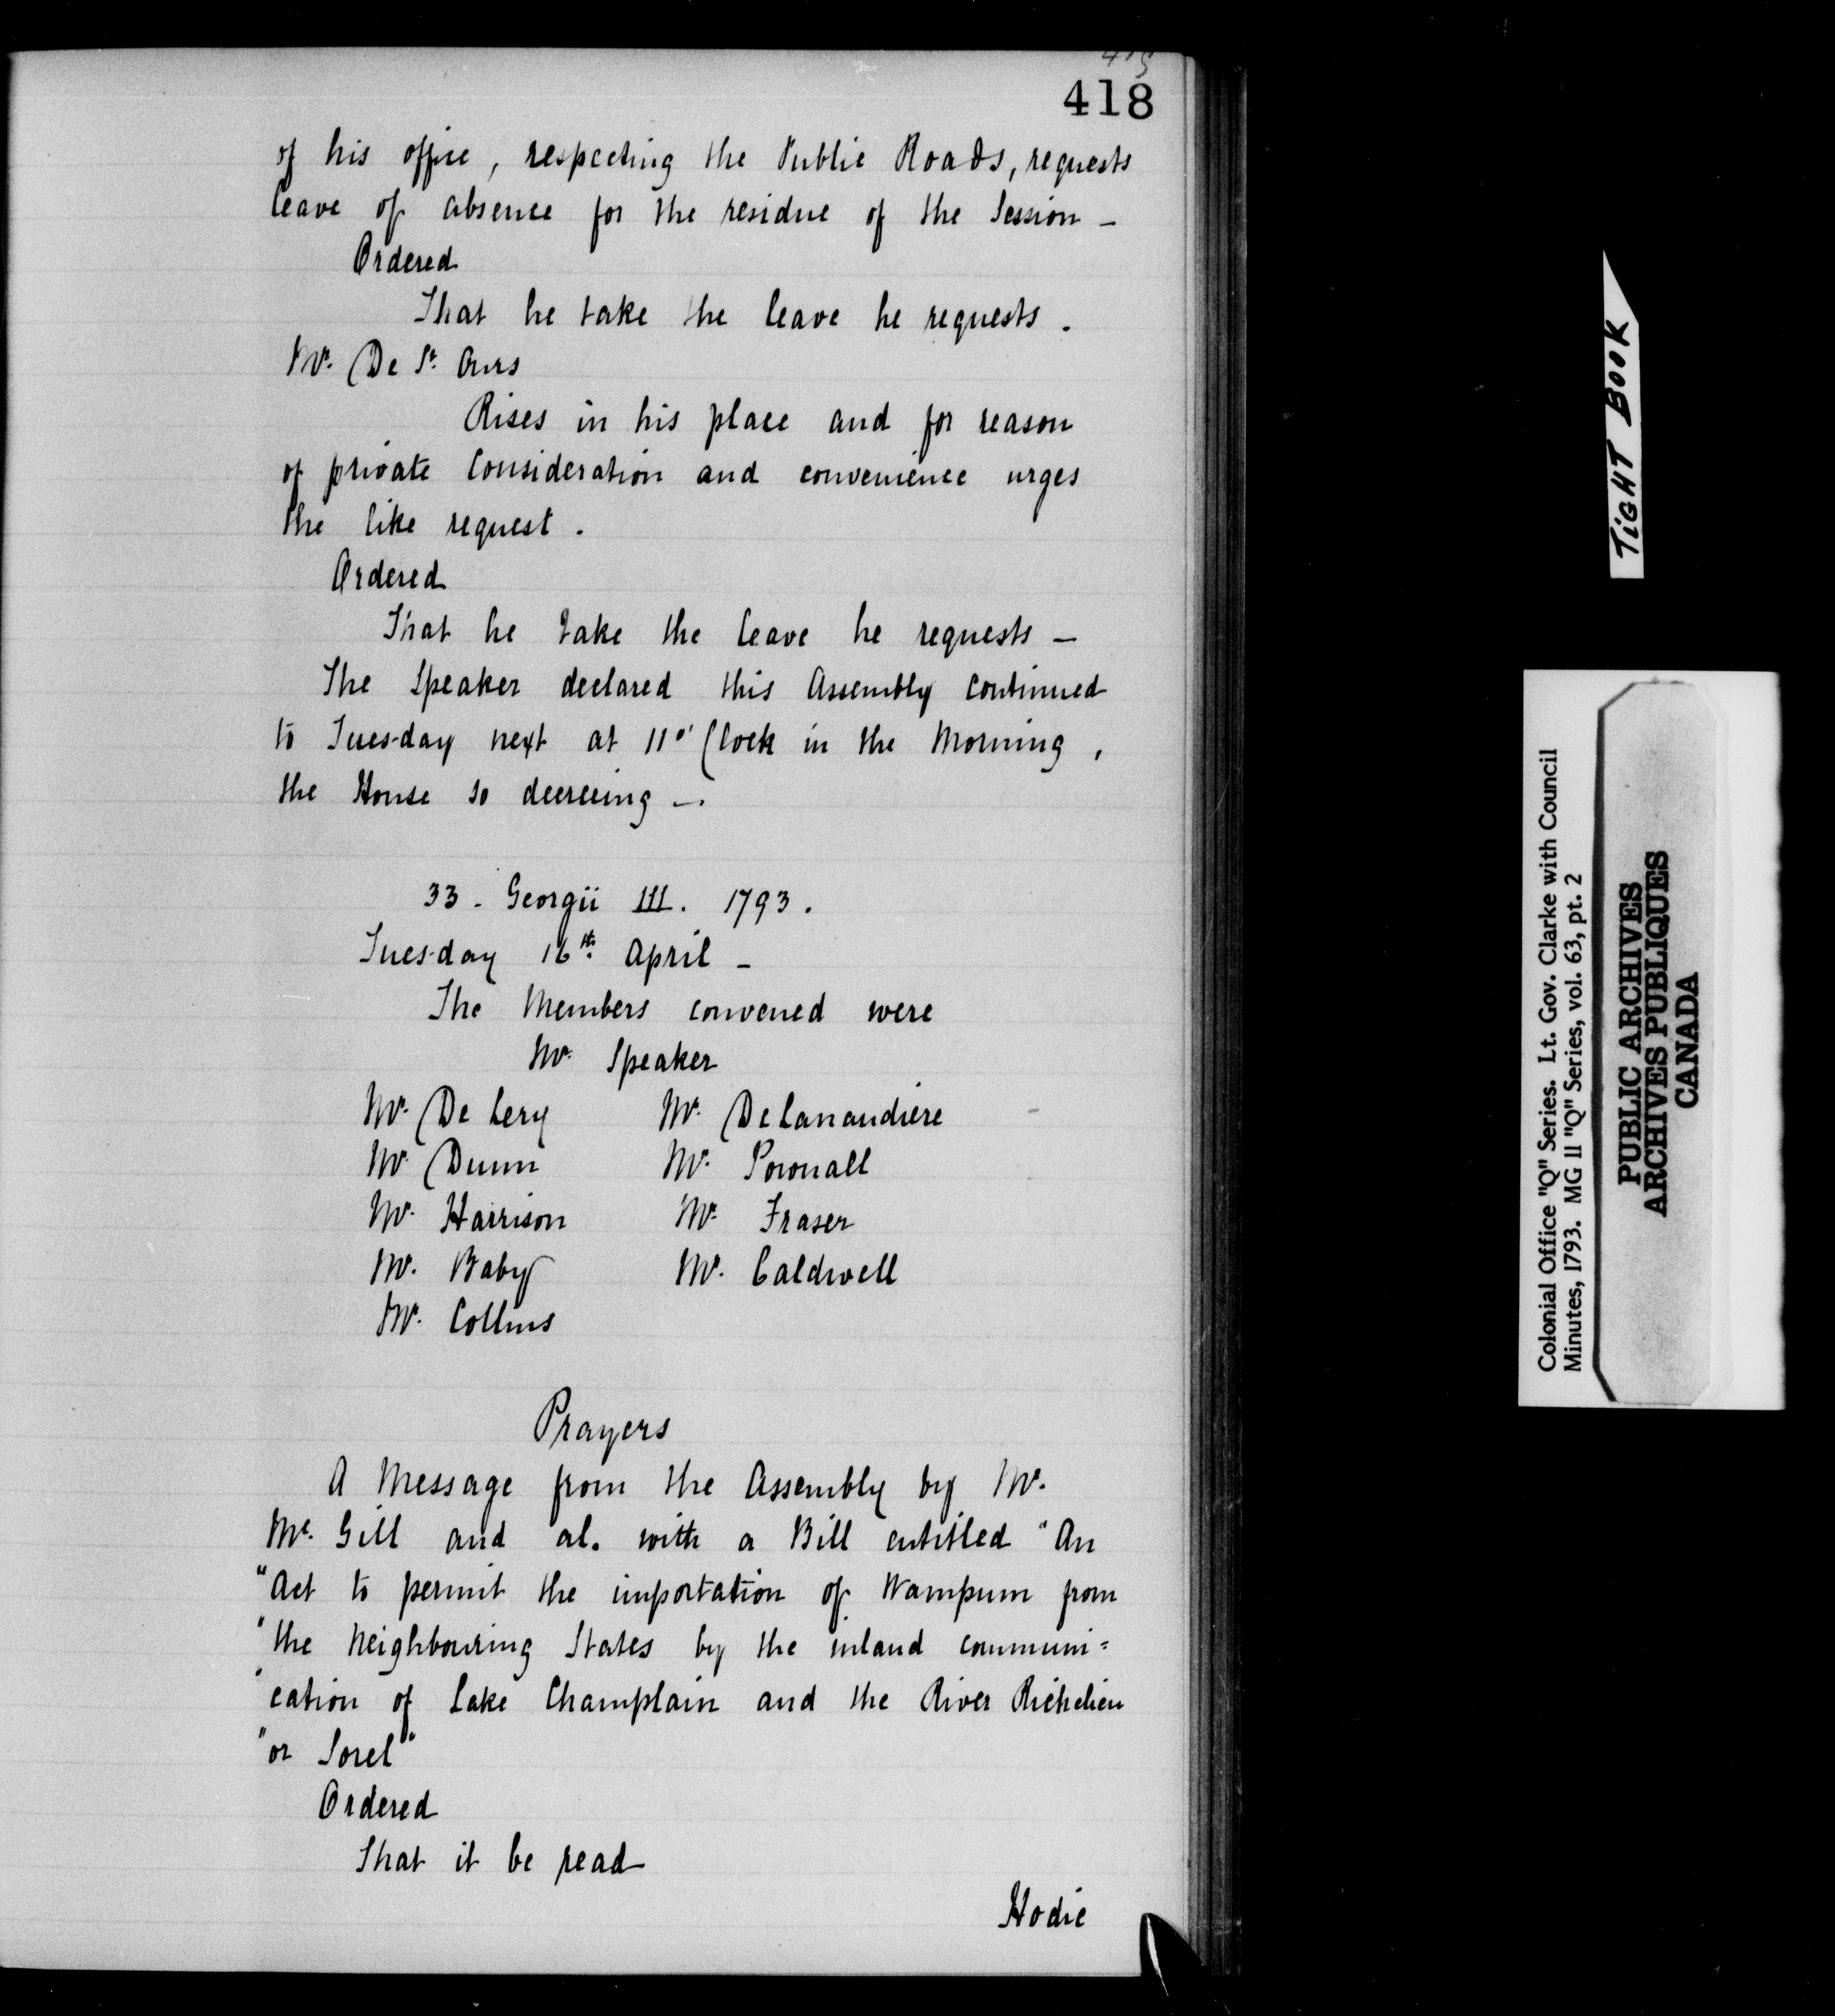 418
of his office, respecting the Public Roads, requests
leave of absence for the residue of the Session -
Ordered
That he take the leave he requests.
Mr. De St. Ours
Rises in his place and for reason
of private Consideration and convenience urges
the like request.
Ordered
That he take the leave he requests -
The Speaker declared this Assembly continued
to Tuesday next at 11 o'Clock in the Morning,
the House so decreeing -.
33 - Georgii III. 1793.
Tuesday 16th April -
The Members convened were
Mr. Speaker
Mr. De Lery Mr. De Lanaudiere
Mr. Dunn Mr. Pownall
Mr. Harrison Mr. Fraser
Mr. Baby Mr. Caldwell
Mr. Collins
Prayers
A Message from the Assembly by Mr.
Mc. Gill and al. with a Bill entitled "An
"Act to permit the importation of Wampum from
"the Neighbouring States by the inland communi=
"cation of Lake Champlain and the River Richelieu
"or Sorel"
Ordered
That it be read
Hodie
TIGHT BOOK
Colonial Office "Q" Series. Lt. Gov. Clarke with Council
Minutes, 1793. MG 11 "Q" Series, vol. 63, pt. 2
PUBLIC ARCHIVES
ARCHIVES PUBLIQUES
CANADA